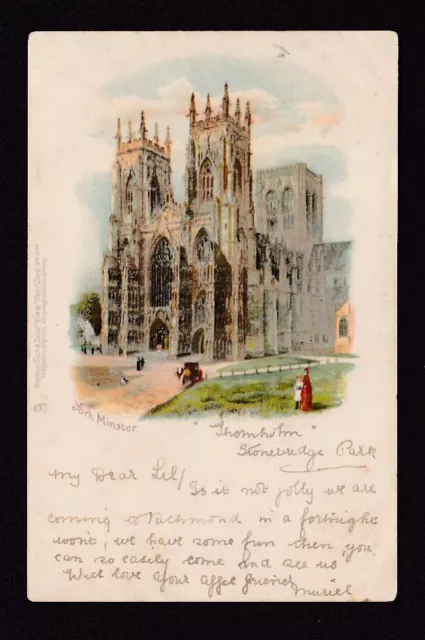 York Minster
"Thornholm"
Stonebridge Park
My Dear Lil/
Is it not jolly we are
coming to Richmond in a fortnights
wont, we have some fun then, you
can so easily come and see us
With love Your affec friend
Muriel